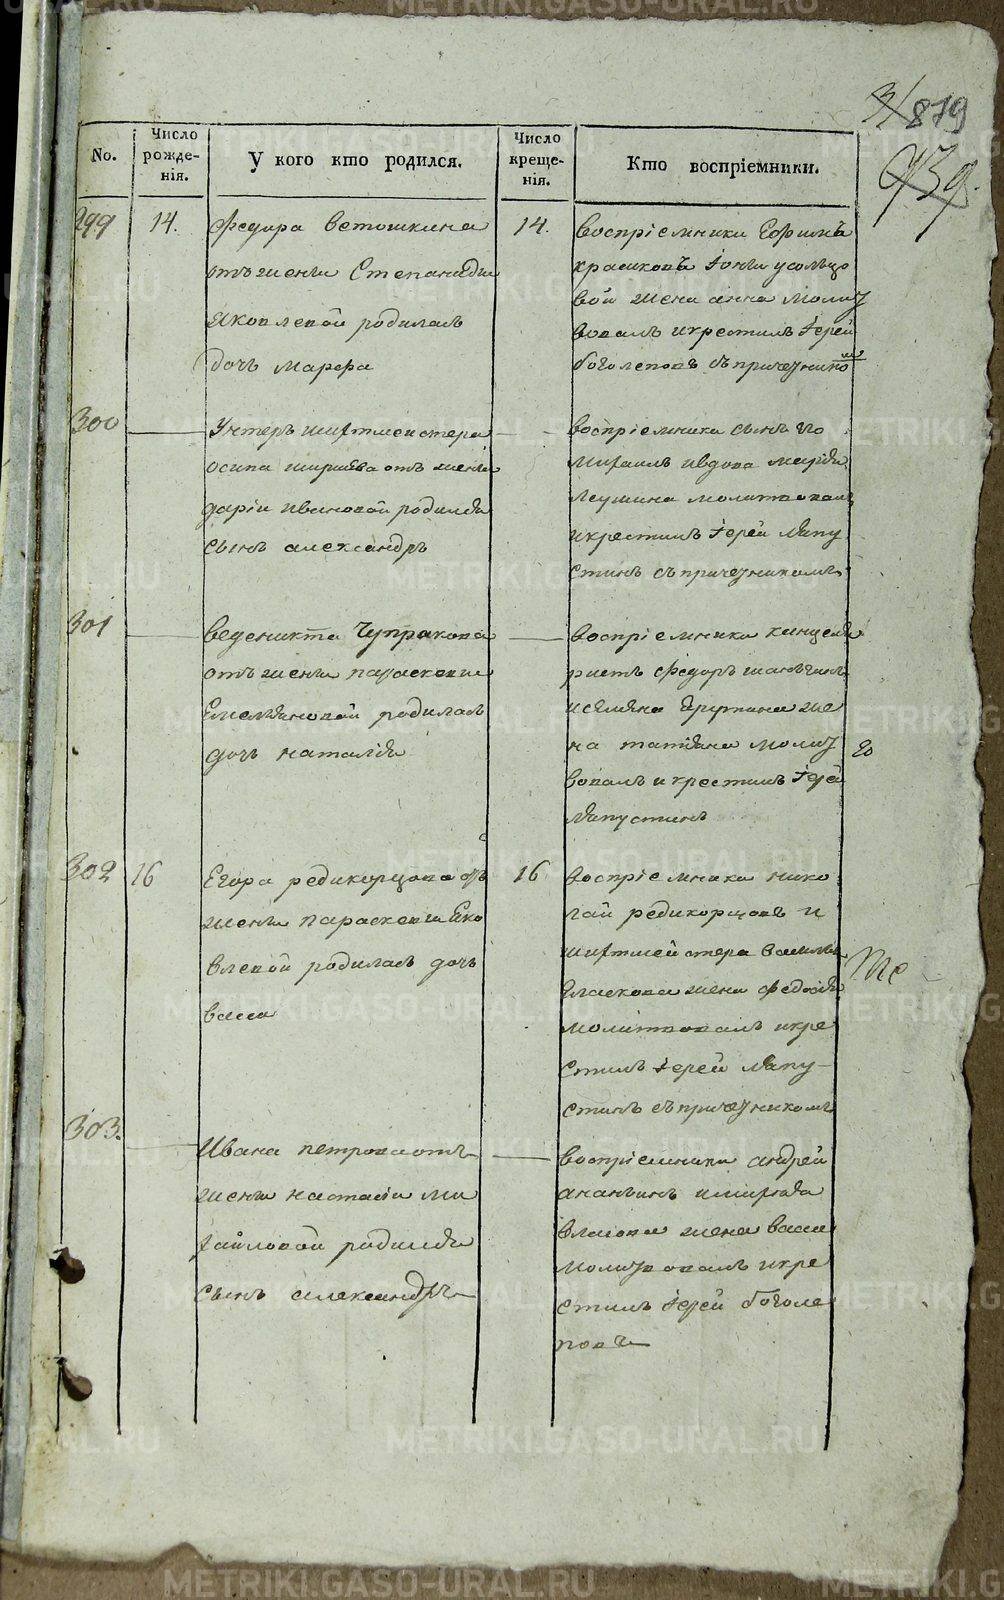 3/879
939.
No.
Число рожде-нія.
У кого кто родился.
Число креще-нія.
Кто воспріемники.
299
14.
Федора Ветошкина
отъ жены Степаниды
Яковлевой родилась
дочь Марфа
14.
воспріемники Ефимъ
красиковъ Іоны усольцо
вой жена анна молит
вовалъ и крестилъ Іерей
боголеповъ съ причетнико
300
Унтеръ шихтмейстера
осипа ширяева отъ жены
даріи ивановой родился
сынъ александръ
воспріемника сынъ его
михаилъ и вдова марія
молитвовалъ
и крестилъ Іерей ляпу
стинъ съ причетникомъ
301
веденикта Чупракова
отъ жены параскевы
Емельяновой родилась
дочь наталія
воспріемника канцеля
ристъ Федоръ
жe
на татіана молит
вовалъ и крестилъ Іерей
ляпустинъ
302
16
Егора редикорцова отъ
жены параскевы Яко
влевой родилась дочь
васса
16
воспріемника нико
лай редикорцовъ и
шихтмейстера василья
жена Федосія
молитвовалъ и кре
стилъ Іерей ляпу
стинъ съ причетникомъ
303.
Ивана петрова отъ
жены настасіи ми
хайловой родился
сынъ александръ
воспріемники андрей
ананьинъ
власова жена васса
молитвовалъ и кре
стилъ Іерей боголе
повъ
METRIKI.GASO-URAL.RU